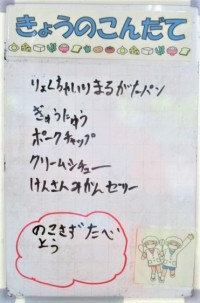 きょうのこんだて
りょくちゃいりまるがたパン
ぎゅうにゅう
ポークチャップ
クリームシチュー
けんさんみかんゼリー
のこさずたべ
よう